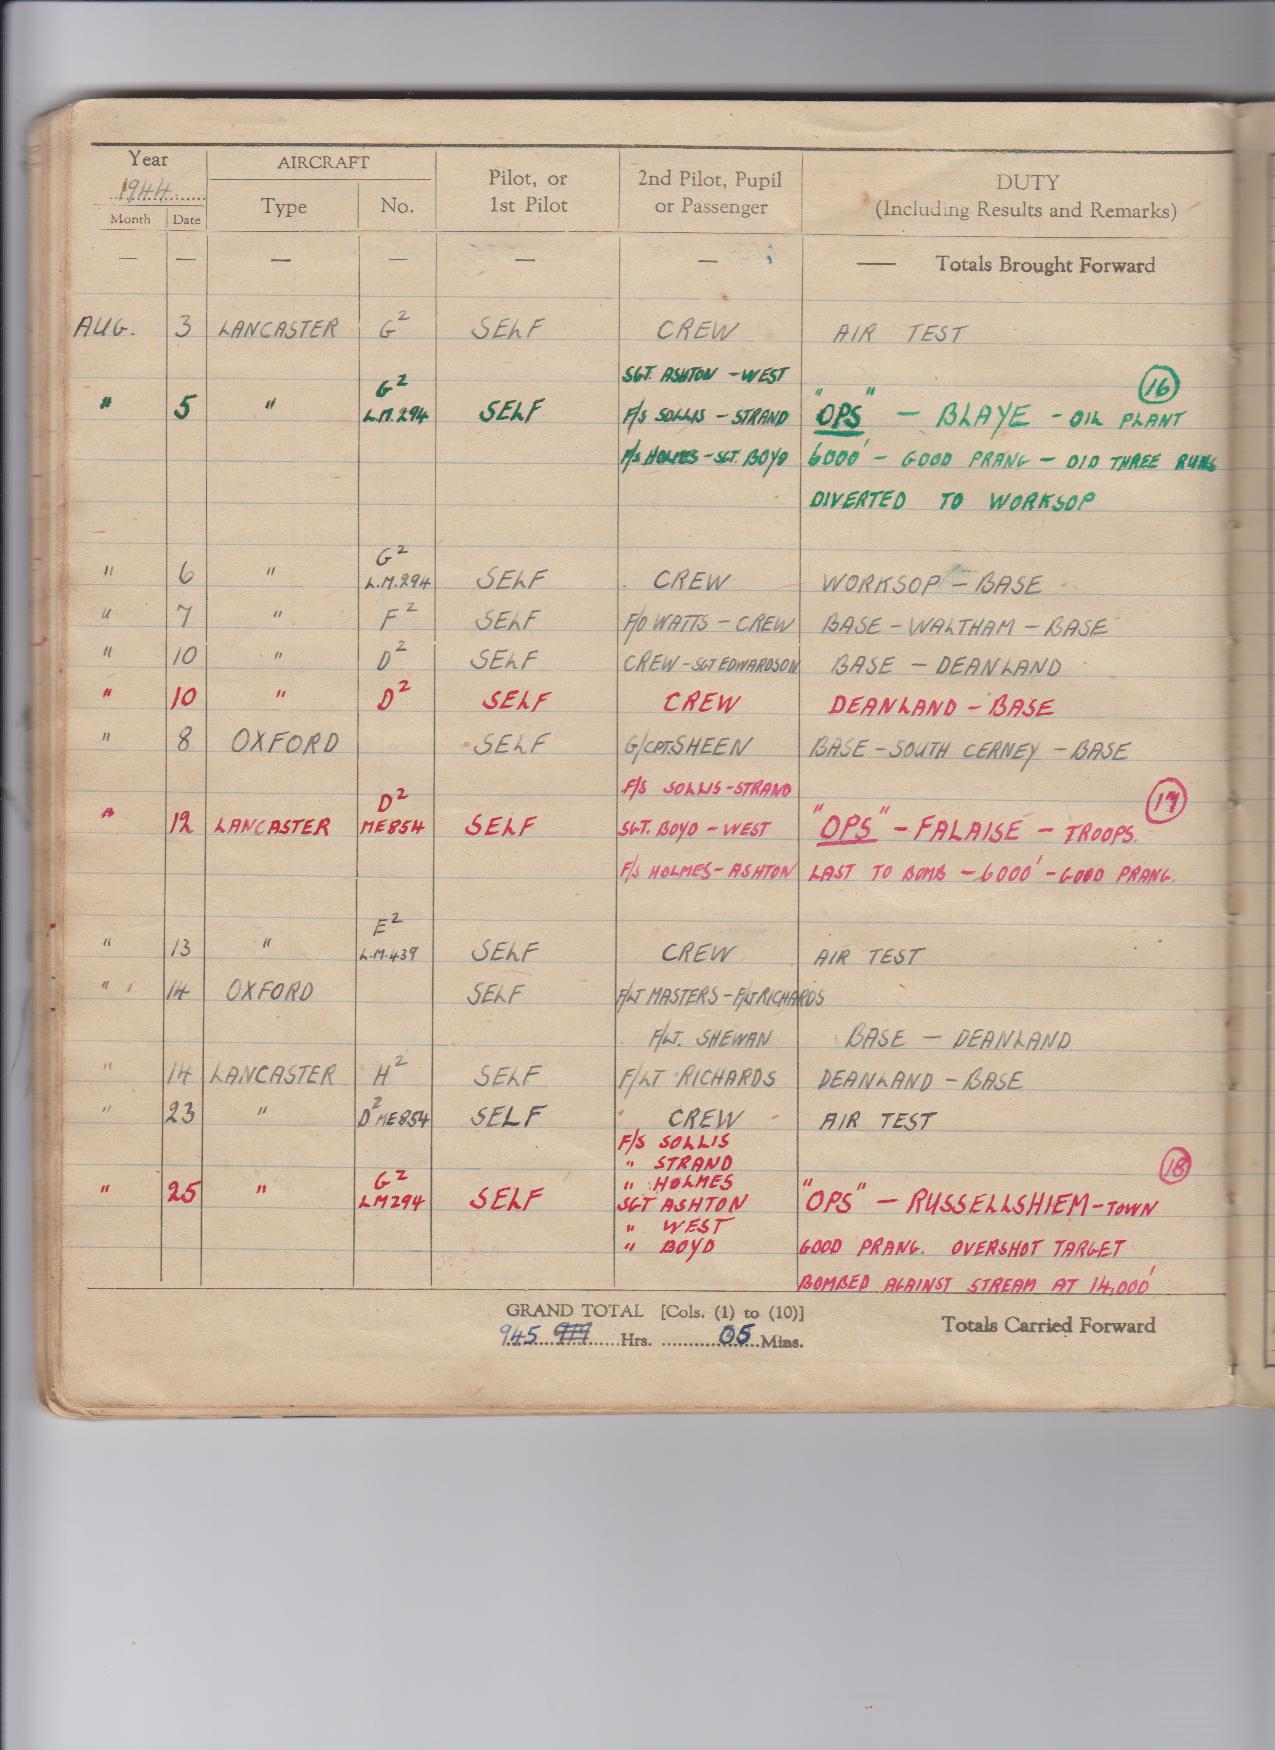 Year AIRCRAFT Pilot, or 1st Pilot 2nd Pilot, Pupil or Passenger DUTY (Including Results and Remarks)
1944 Type No.
Month Date
— — — — — — — Totals Brought Forward
AUG. 3 LANCASTER G² SELF CREW AIR TEST
SGT. ASHTON - WEST
G² (16)
" 5 " L.M.294 SELF F/S SOLLIS - STRAND "OPS" - BLAYE - OIL PLANT
F/S HOLMES - SGT. BOYD 6000' - GOOD PRANG - DID THREE RUNS
DIVERTED TO WORKSOP
G²
" 6 " L.M.294 SELF CREW WORKSOP - BASE
" 7 " F² SELF F/O WATTS - CREW BASE - WALTHAM - BASE
" 10 " D² SELF CREW - SGT EDWARDSON BASE - DEANLAND
" 10 " D² SELF CREW DEANLAND - BASE
" 8 OXFORD SELF G/CPT. SHEEN BASE - SOUTH CERNEY - BASE
F/S SOLLIS - STRAND
D² (17)
" 12 LANCASTER ME854 SELF SGT. BOYD - WEST "OPS" - FALAISE - TROOPS.
F/S HOLMES - ASHTON LAST TO BOMB - 6000' - GOOD PRANG.
E²
" 13 " L.M.439 SELF CREW AIR TEST
" 14 OXFORD SELF F/LT MASTERS - F/LT RICHARDS
F/LT. SHEWAN BASE - DEANLAND
" 14 LANCASTER H² SELF F/LT RICHARDS DEANLAND - BASE
" 23 " D² ME854 SELF CREW AIR TEST
F/S SOLLIS
" STRAND (18)
G² " HOLMES
" 25 " LM294 SELF SGT ASHTON "OPS" - RUSSELLSHIEM - TOWN
" WEST
" BOYD GOOD PRANG. OVERSHOT TARGET
BOMBED AGAINST STREAM AT 14,000'
GRAND TOTAL [Cols. (1) to (10)] Totals Carried Forward
945 919 Hrs. 05 Mins.